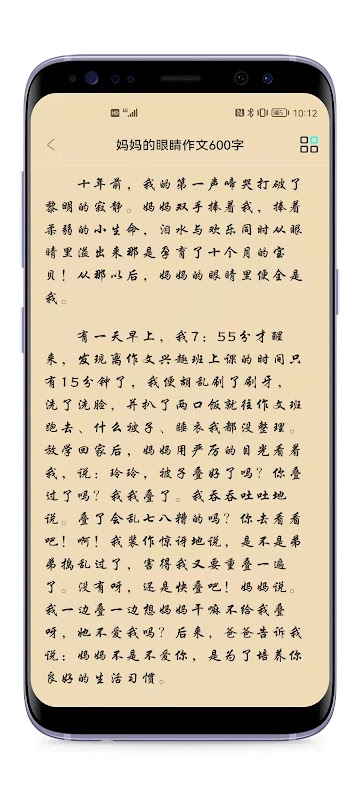 HD 4G 65 10:12
妈妈的眼睛作文600字
十年前，我的第一声啼哭打破了
黎明的寂静。妈妈双手捧着我，捧着
柔弱的小生命，泪水与欢乐同时从眼
睛里溢出来那是孕育了十个月的宝
贝！从那以后，妈妈的眼睛里便全是
我。
有一天早上，我7：55分才醒
来，发现离作文兴趣班上课的时间只
有15分钟了，我便胡乱刷了刷牙，
洗了洗脸，并扒了两口饭就往作文班
跑去、什么被子、睡衣我都没整理。
放学回家后，妈妈用严厉的目光看着
我，说：玲玲，被子叠好了吗？你叠
过了吗？我我叠了。我吞吞吐吐地
说。叠了会乱七八糟的吗？你去看看
吧！啊！我装作惊讶地说，是不是弟
弟捣乱过了，害得我又要重叠一遍
了。没有呀，还是快叠吧！妈妈说。
我一边叠一边想妈妈干嘛不给我叠
呀，她不爱我吗？后来，爸爸告诉我
说：妈妈不是不爱你，是为了培养你
良好的生活习惯。